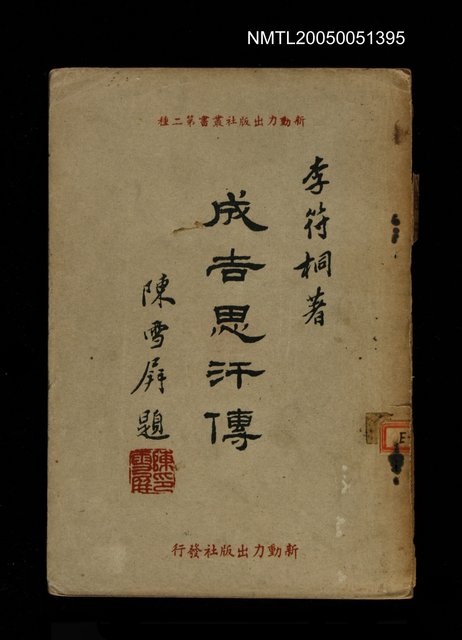 NMTL20050051395
新動力出版社叢書第二種
李符桐著
成吉思汗傳
陳雪屏題
陳印
雪屏
新動力出版社發行